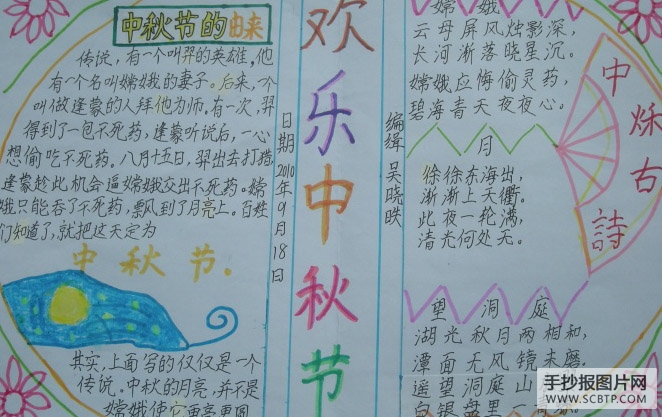 中秋节的由来
传说，有一个叫羿的英雄，他
有一个名叫嫦娥的妻子。后来，一个
叫做逢蒙的人拜他为师。有一次，羿
得到了一包不死药，逢蒙听说后，一心
想偷吃不死药。八月十五日，羿出去打猎，
逢蒙趁此机会逼嫦娥交出不死药。嫦
娥只能吞了不死药，飘风到了月亮上。百姓
们知道了，就把这天定为
中秋节.
其实，上面写的仅仅是一个
传说。中秋的月亮，并不是
嫦娥使它更亮更圆
日期2010年9月18日
欢乐中秋节
编缉 吴晓昳
嫦娥
云母屏风烛影深，
长河渐落晓星沉。
嫦娥应悔偷灵药，
碧海青天夜夜心。
月
徐徐东海出，
渐渐上天衢。
此夜一轮满，
清光何处无。
中秋古詩
望洞庭
湖光秋月两相和，
潭面无风镜未磨。
遥望洞庭山
白银盘里一
手抄报图片网
WWW.SCBTP.COM